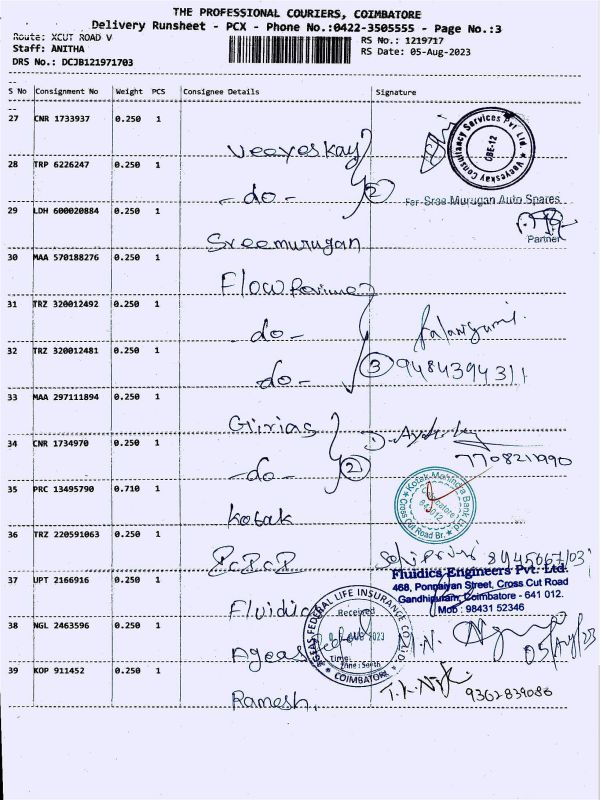 THE PROFESSIONAL COURIERS, COIMBATORE
Delivery Runsheet - PCX - Phone No.:0422-3505555 - Page No.:3
Route: XCUT ROAD V
RS No.: 1219717
Staff: ANITHA
RS Date: 05-Aug-2023
DRS No.: DCJB121971703
S No Consignment No Weight PCS Consignee Details Signature
27 CNR 1733937 0.250 1
Veeyeskay
Veeyeskay Consultancy Services Pvt Ltd. CBE-12
28 TRP 6226247 0.250 1
-do- 2
For Sree Murugan Auto Spares
29 LDH 600020884 0.250 1
Partner
Sreemurugan
30 MAA 570188276 0.250 1
31 TRZ 320012492 0.250 1
-do-
32 TRZ 320012481 0.250 1
-do- 3 9484394311
33 MAA 297111894 0.250 1
Girias
34 CNR 1734970 0.250 1
-do- 2
35 PRC 13495790 0.710 1
Kotak
Kotak Mahindra Bank Ltd. Cross Cut Road Br.
36 TRZ 220591063 0.250 1
37 UPT 2166916 0.250 1
Fluidics Engineers Pvt. Ltd.
468, Ponnaiyan Street, Cross Cut Road
Gandhipuram, Coimbatore - 641 012.
Mob : 98431 52346
Fluidic
38 NGL 2463596 0.250 1
AGEAS FEDERAL LIFE INSURANCE CO. LTD. COIMBATORE
Received
AUG 2023
Time:
Zone: South
Ageas
05/Aug/23
39 KOP 911452 0.250 1
9362839088
Ramesh.